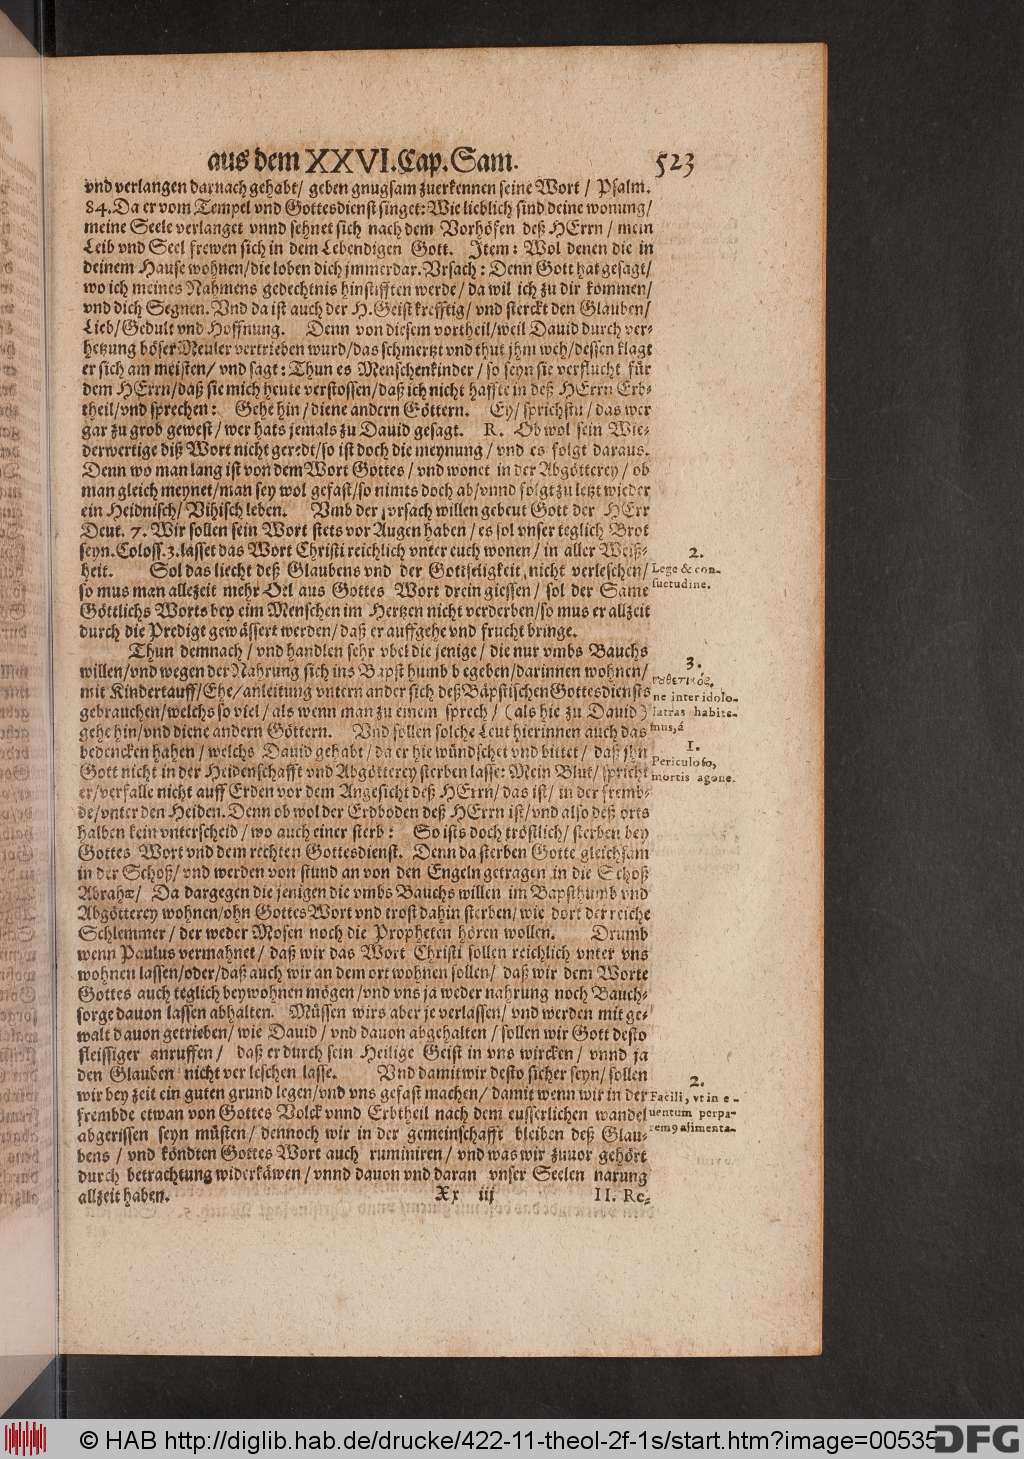 aus dem XXVI. Cap. Sam. 523
vnd verlangen darnach gehabt/ geben gnugsam zuerkennen seine Wort / Psalm.
84. Da er vom Tempel vnd Gottesdienst singet: Wie lieblich sind deine wonung/
meine Seele verlanget vnnd sehnet sich nach dem Vorhöfen deß HErrn / mein
Leib vnd Seel frewen sich in dem Lebendigen Gott. Item: Wol denen die in
deinem Hause wohnen/ die loben dich jmmerdar. Vrsach: Denn Gott hat gesagt/
wo ich meines Nahmens gedechtnis hinstifften werde/ da wil ich zu dir kommen/
vnd dich Segnen. Vnd da ist auch der H. Geist krefftig/ vnd sterckt den Glauben/
Lieb/ Gedult vnd Hoffnung. Denn von diesem vortheil/ weil Dauid durch ver-
hetzung böser Meuler vertrieben wurd/ das schmertzt vnd thut jhm weh/ dessen klagt
er sich am meisten/ vnd sagt: Thun es Menschenkinder / so seyn sie verflucht für
dem HErrn/ daß sie mich heute verstossen/ daß ich nicht haffte in deß HErrn Erb-
theil/ vnd sprechen: Gehe hin / diene andern Göttern. Ey/ sprichstu / das wer
gar zu grob gewest/ wer hats jemals zu Dauid gesagt. R. Ob wol sein Wie-
derwertige diß Wort nicht geredt/ so ist doch die meynung / vnd es folgt daraus.
Denn wo man lang ist von dem Wort Gottes / vnd wonet in der Abgötterey / ob
man gleich meynet/ man sey wol gefast/ so nimts doch ab/ vnnd folgt zu letzt wieder
ein Heidnisch/ Vihisch leben. Vmb der vrsach willen gebeut Gott der HErr
Deut. 7. Wir sollen sein Wort stets vor Augen haben / es sol vnser teglich Brot
seyn. Coloss. 3. lasset das Wort Christi reichlich vnter euch wonen/ in aller Weiß-
heit. Sol das liecht deß Glaubens vnd der Gottseligkeit nicht verleschen/
so mus man allezeit mehr Oel aus Gottes Wort drein giessen/ sol der Same
Göttlichs Worts bey eim Menschen im Hertzen nicht verderben/ so mus er allzeit
durch die Predigt gewässert werden/ daß er auffgehe vnd frucht bringe.
2.
Lege & con-
suetudine.
Thun demnach / vnd handlen sehr vbel die jenige / die nur vmbs Bauchs
willen/ vnd wegen der Nahrung sich ins Bapsthumb begeben/ darinnen wohnen/
mit Kindertauff/ Ehe/ anleitung vntern ander sich deß Bäpstischen Gottesdiensts
gebrauchen/ welchs so viel / als wenn man zu einem sprech / (als hie zu Dauid)
gehe hin/ vnd diene andern Göttern. Vnd sollen solche Leut hierinnen auch das
bedencken haben / welchs Dauid gehabt / da er hie wündschet vnd bittet / daß jhn
Gott nicht in der Heidenschafft vnd Abgötterey sterben lasse: Mein Blut/ spricht
er/ verfalle nicht auff Erden vor dem Angesicht deß HErrn/ das ist/ in der fremb-
de/ vnter den Heiden. Denn ob wol der Erdboden deß HErrn ist/ vnd also deß orts
halben kein vnterscheid / wo auch einer sterb: So ists doch tröstlich / sterben bey
Gottes Wort vnd dem rechten Gottesdienst. Denn da sterben Gotte gleichsam
in der Schoß/ vnd werden von stund an von den Engeln getragen in die Schoß
Abrahæ/ Da dargegen die jenigen die vmbs Bauchs willen im Bapsthumb vnd
Abgötterey wohnen/ ohn Gottes Wort vnd trost dahin sterben/ wie dort der reiche
Schlemmer / der weder Mosen noch die Propheten hören wollen. Drumb
wenn Paulus vermahnet/ daß wir das Wort Christi sollen reichlich vnter vns
wohnen lassen/ oder/ daß auch wir an dem ort wohnen sollen/ daß wir dem Worte
Gottes auch teglich beywohnen mögen/ vnd vns ja weder nahrung noch Bauch-
sorge dauon lassen abhalten. Müssen wirs aber je verlassen/ vnd werden mit ge-
walt dauon getrieben/ wie Dauid / vnd dauon abgehalten / sollen wir Gott desto
fleissiger anruffen / daß er durch sein Heilige Geist in vns wircken / vnnd ja
den Glauben nicht verleschen lasse. Vnd damit wir desto sicher seyn/ sollen
wir bey zeit ein guten grund legen/ vnd vns gefast machen/ damit wenn wir in der
frembde etwan von Gottes Volck vnnd Erbtheil nach dem eusserlichen wandel
abgerissen seyn müsten / dennoch wir in der gemeinschafft bleiben deß Glau-
bens / vnd köndten Gottes Wort auch ruminiren / vnd was wir zuuor gehört
durch betrachtung widerkäwen / vnnd dauon vnd daran vnser Seelen narung
allzeit haben.
3.
νυθετικῶς,
ne inter idolo-
latras habite-
mus, á
1.
Periculoso,
mortis agone.
2.
Facili, vt in e-
uentum perpa-
remꝰ alimenta.
Xx iij II. Re-
© HAB http://diglib.hab.de/drucke/422-11-theol-2f-1s/start.htm?image=00535
DFG